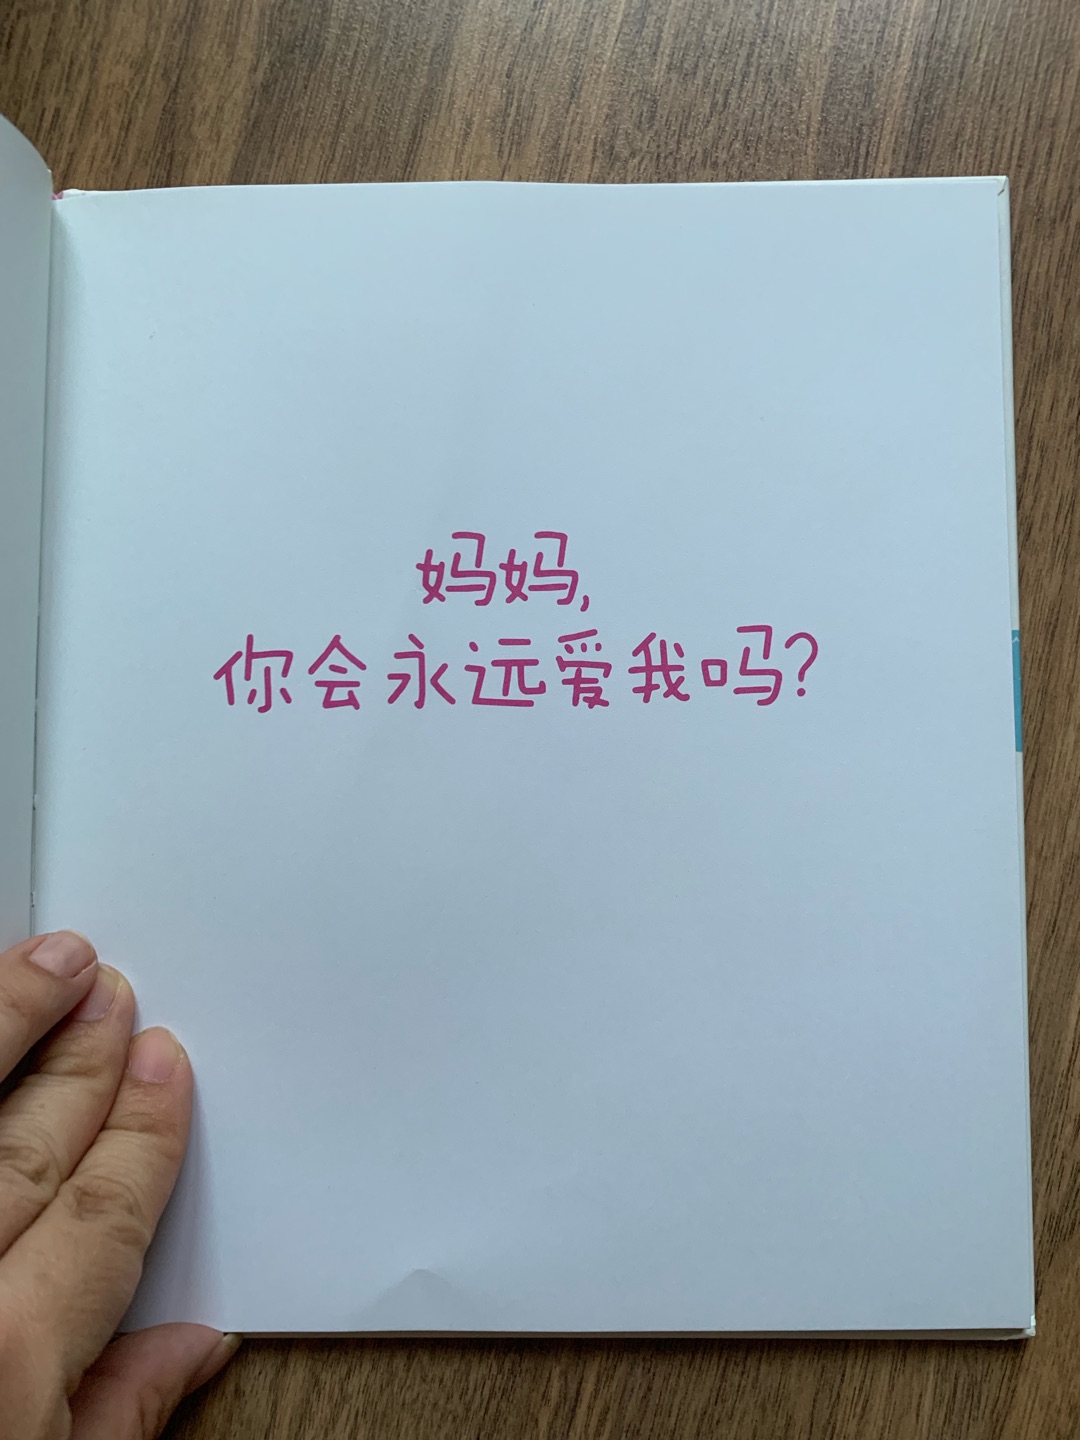 妈妈,
你会永远爱我吗?